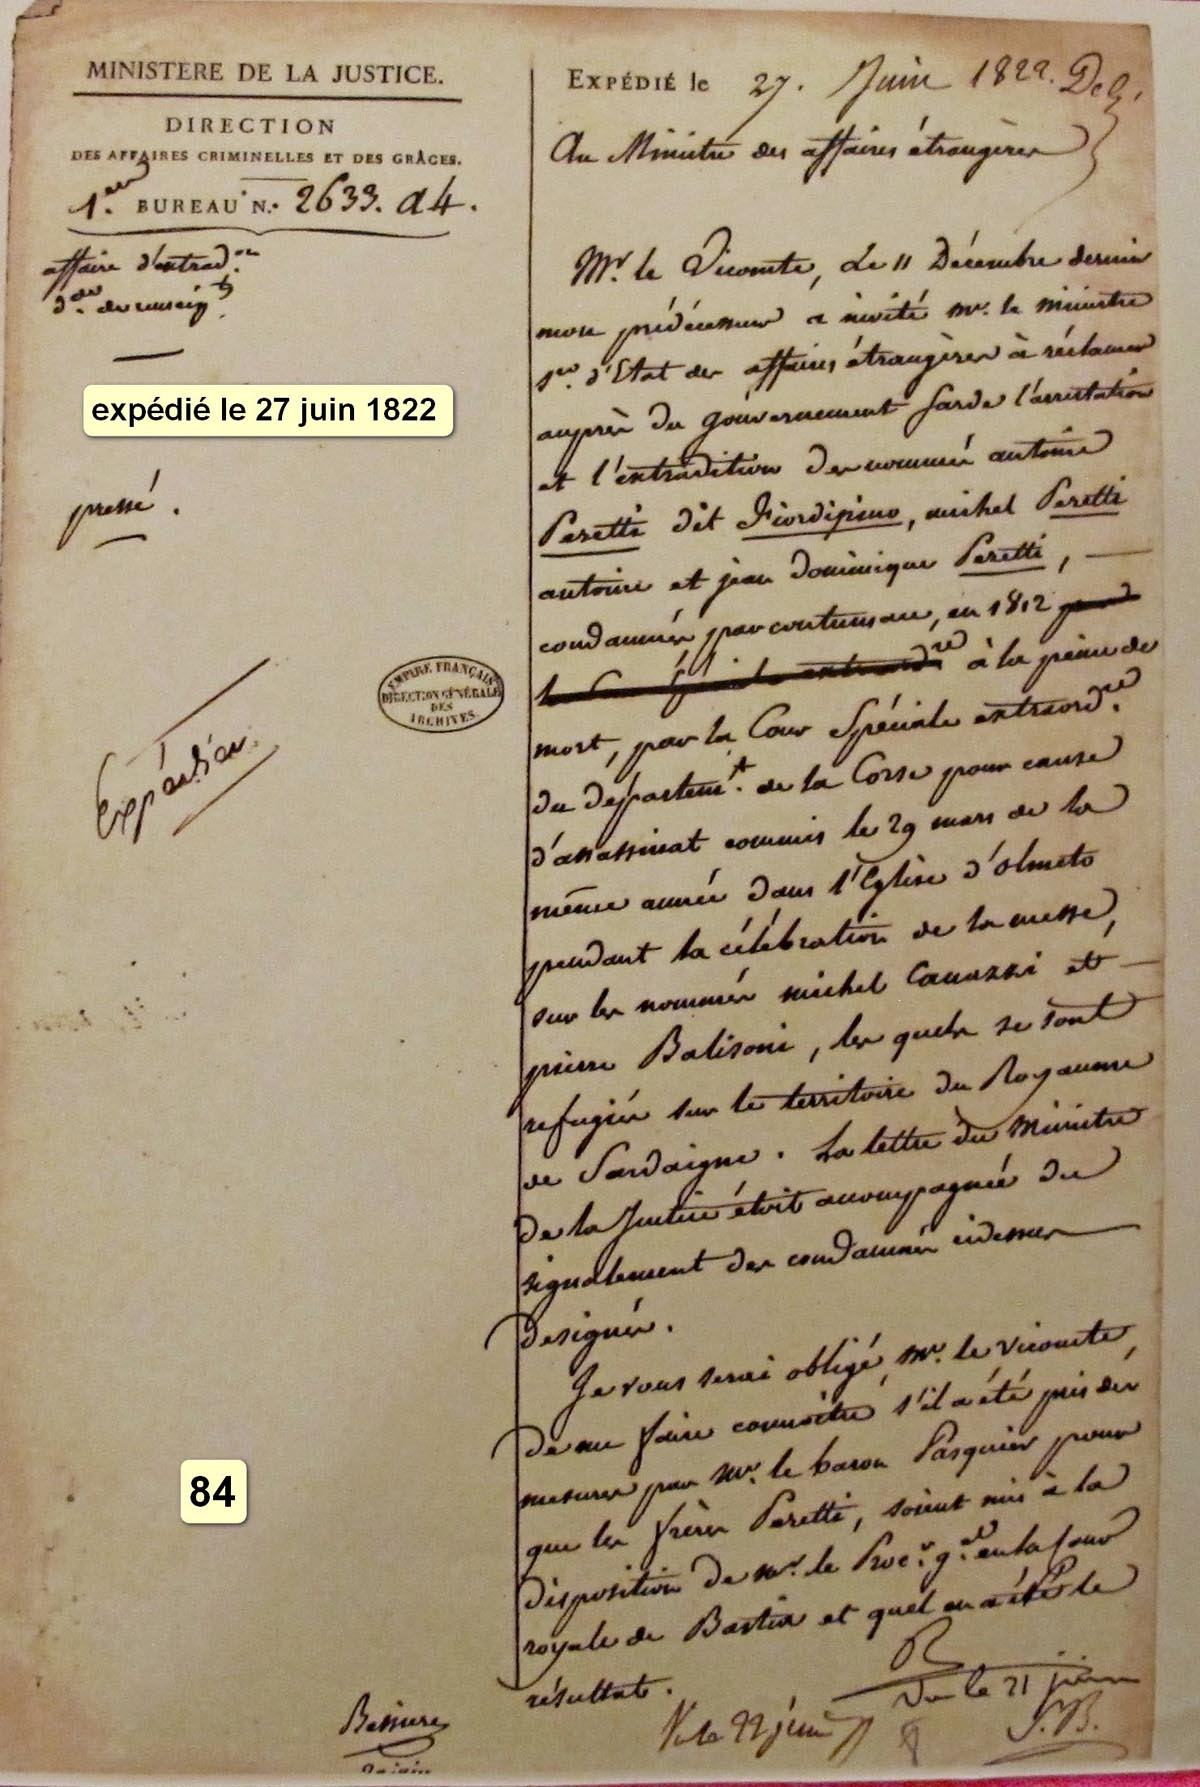 MINISTERE DE LA JUSTICE.
DIRECTION
DES AFFAIRES CRIMINELLES ET DES GRÂCES.
1.er BUREAU N.º 2633. A4.
affaire d'extrad.on
d.de de renseig.ts
expédié le 27 juin 1822
pressé.
EMPIRE FRANÇAIS
DIRECTION GÉNÉRALE
DES
ARCHIVES.
84
Bessieres
EXPÉDIÉ le 27. Juin 1822.
Au Ministre des affaires étrangères
Mr. le Vicomte, Le 11 Décembre dernier
mon prédécesseur a invité mr. le ministre
s.re d'Etat des affaires étrangères à réclamer
auprès du gouvernement Sarde l'arrestation
et l'extradition des nommés antoine
Peretti dit Fiordipino, michel Peretti
antoine et jean Dominique Peretti,
condamnés par contumace, en 1812
à la peine de
mort, par la Cour Spéciale extraord.re
du départem.t de la Corse pour cause
d'assassinat commis le 29 mars de la
même année dans l'Eglise d'Olmeto
pendant la célébration de la messe,
sur les nommés michel Canazzi et
pierre Balisoni, les quels se sont
refugiés sur le territoire du Royaume
de Sardaigne. La lettre du Ministre
de la Justice étoit accompagnée du
signalement des condamnés cidessus
designés.
Je vous serai obligé, mr. le vicomte,
de me faire connoître s'il a été pris des
mesures par mr. le baron Pasquier pour
que les frères Peretti, soient mis à la
disposition de mr. le Proc.r g.al en la Cour
royale de Bastia et quel en a été le
résultat.
Vu le 21 juin
V. le 22 juin
S.B.